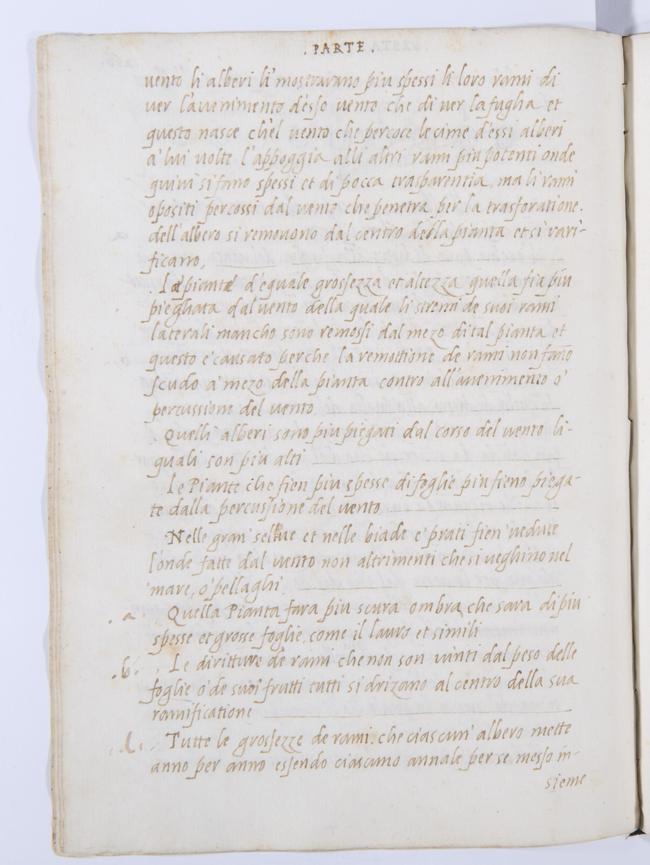 . PARTE .
vento li alberi li mostrarano piu spessi li loro rami di
ver l'avenimento d'esso vento che di ver la fughа et
questo nasce ch'el vento che percore le cime d'essi alberi
a' lui volte l'appoggia alli altri rami piu potenti onde
quivi si fano spessi et di pocca trasparentia, ma li rami
opositi percossi dal vento che penetra per la trasforatione
dell'albero si removono dal centro della pianta et si rari-
ficarro,
piante d'equale grossezza et altezza quella fia piu
pieghata dal vento della quale li stremi de suoi rami
laterali mancho sono remossi dal mezo di tal pianta et
questo e' causato perche la remottione de rami non fano
scudo a' mezo della pianta contro all'avenimento o'
percussione del vento
Quelli alberi sono piu piegati dal corso del vento li-
quali son piu alti
Le Piante che fien piu spesse di foglie piu fieno piega-
te dalla percussione del vento
Nelle gran selve et nelle biade e' prati fien vedute
l'onde fatte dal vento non altrimenti che si veghino nel
mare, o' pellaghi
.a. Quella Pianta fara piu scura ombra che sara di piu
spesse et grosse foglie come il lauro et simili
.b. Le diritture de rami che non son vinti dal peso delle
foglie o' de suoi frutti tutti si drizano al centro della sua
ramificatione
Tutte le grossezze de rami che ciascun' albero mette
anno per anno essendo ciascuno annale per se messo in-
sieme